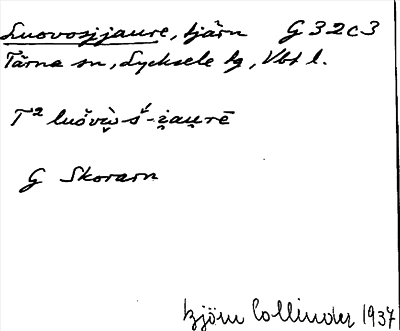 Luovosjjaure, tjärn G 32c3
Tärna sn, Lycksele lg, Vbt l.
T² luŏvὼ̬-s̀-ż̭au̯rē
G Skorarn
Björn Collinder 1937